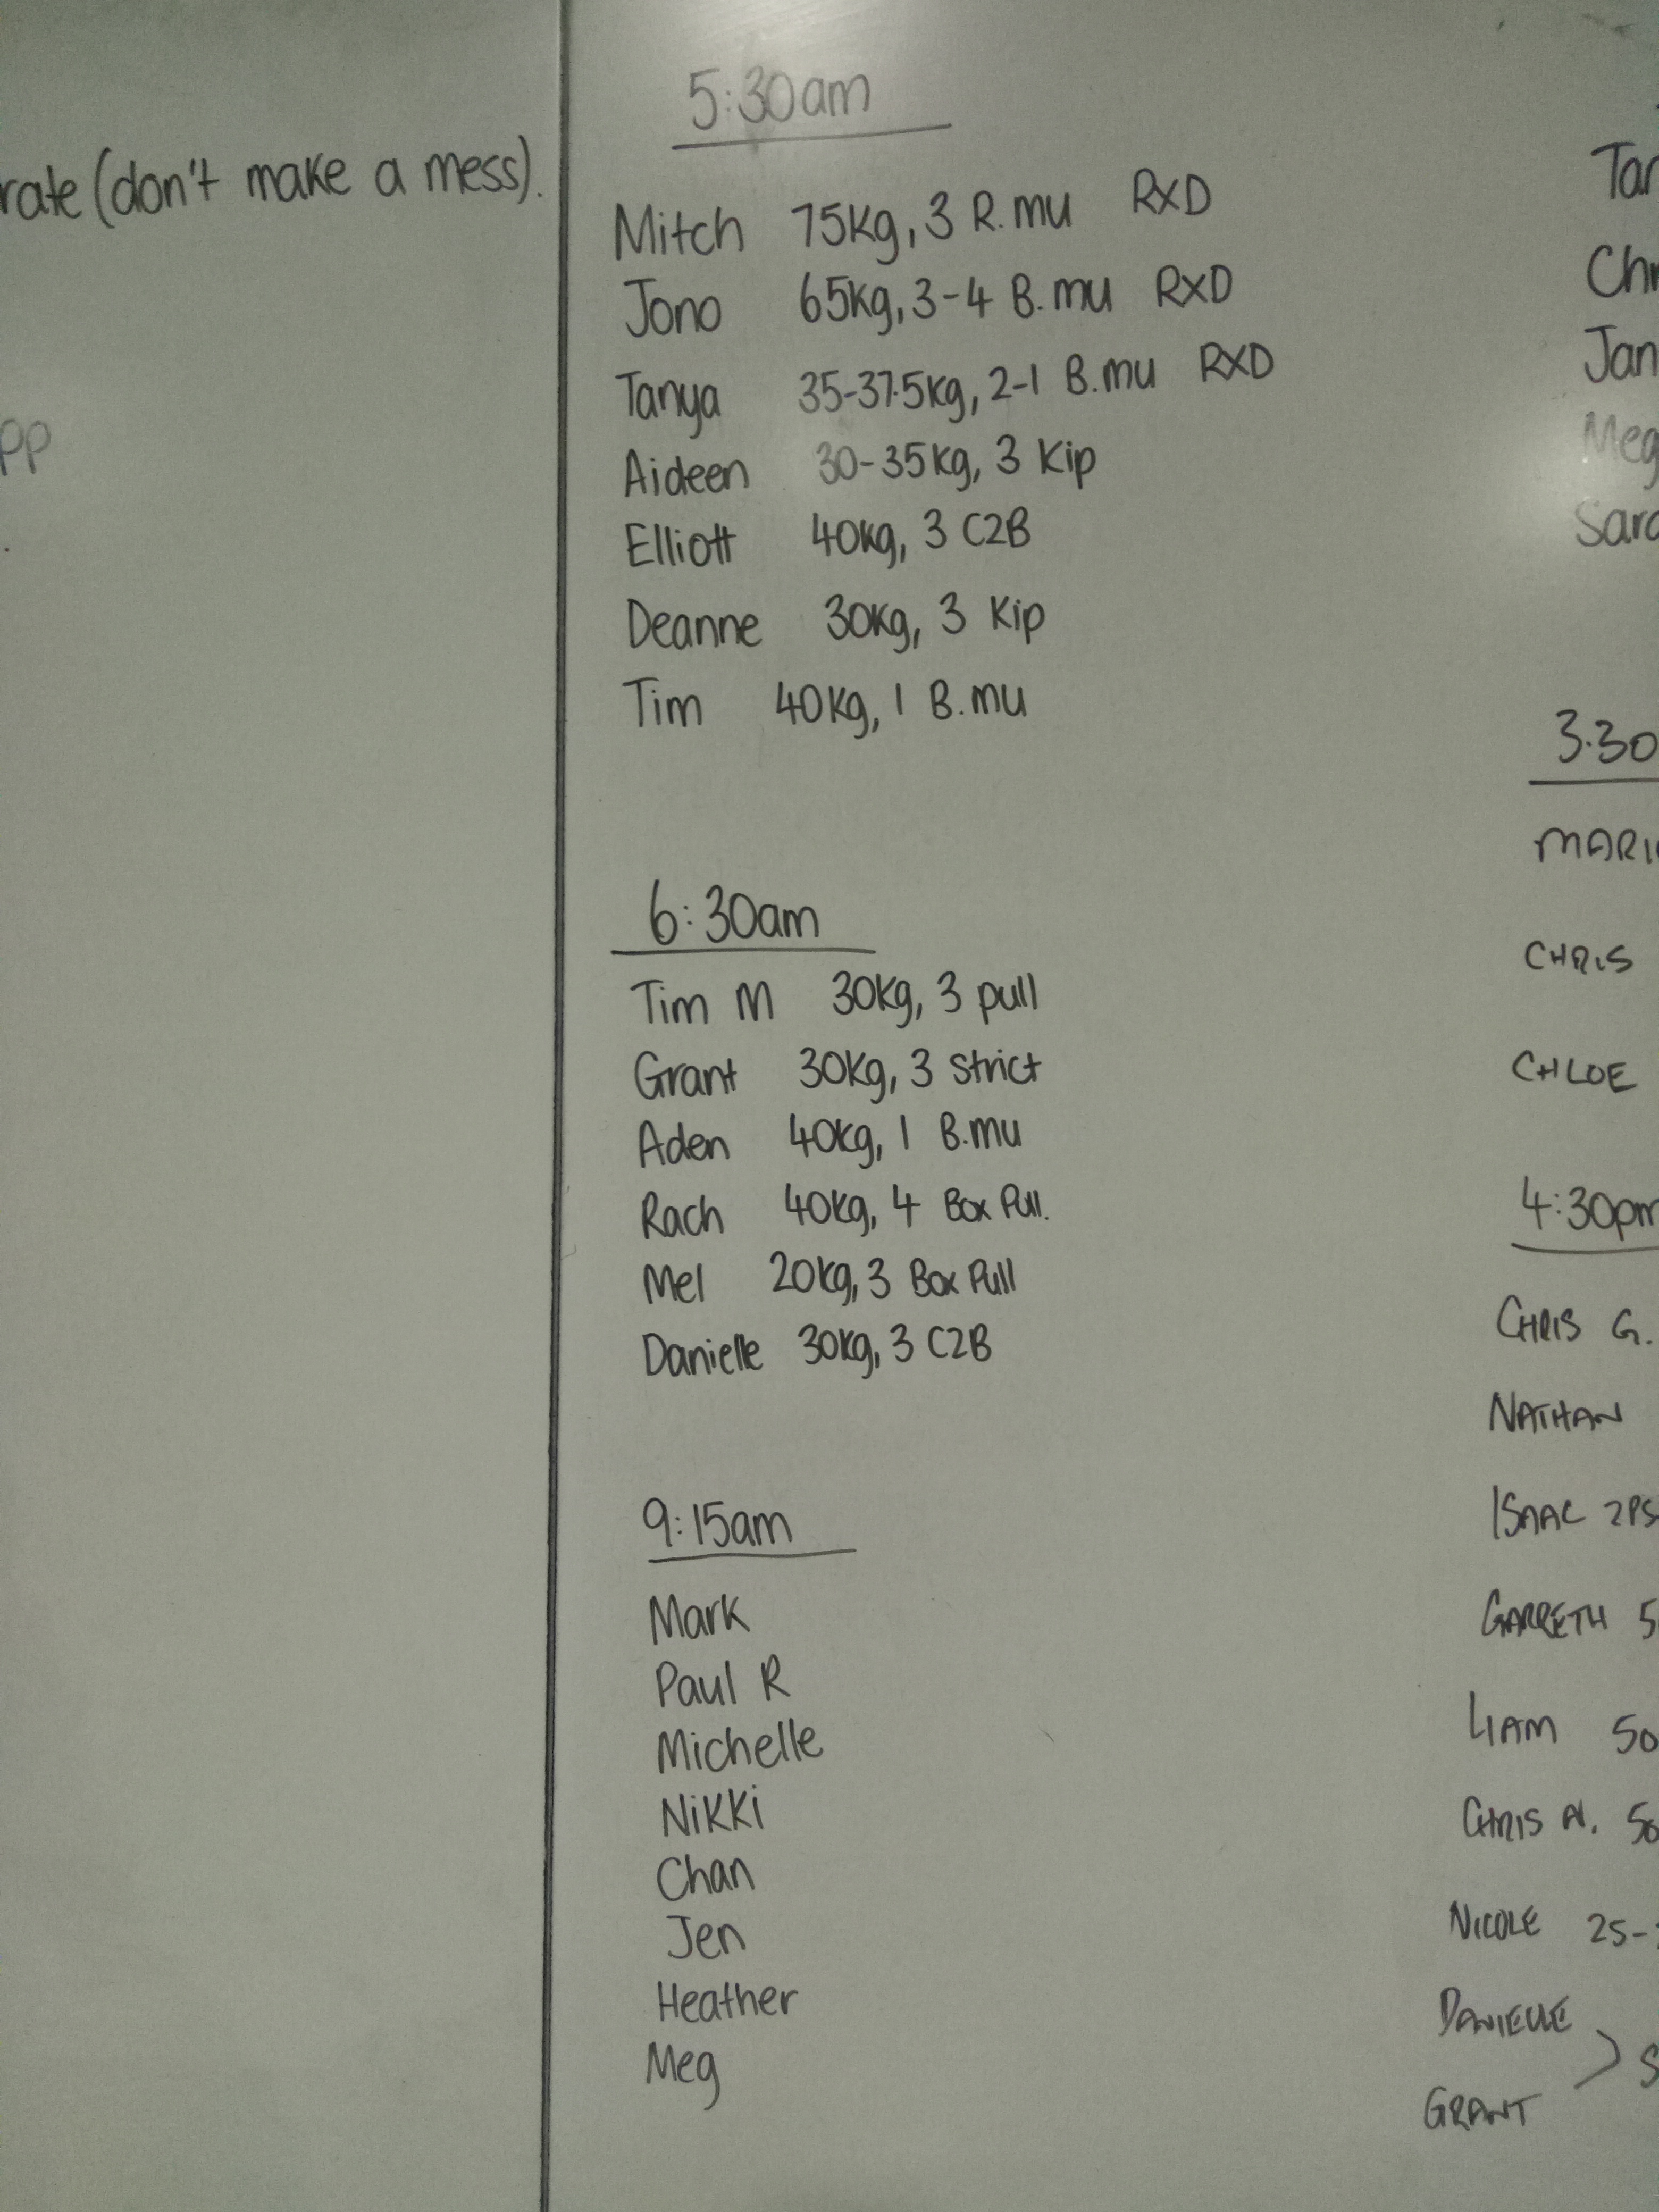 rate (don't make a mess).
pp
5:30am
Mitch 75kg, 3 R.mu RXD
Jono 65kg, 3-4 B.mu RXD
Tanya 35-37.5kg, 2-1 B.mu RXD
Aideen 30-35kg, 3 Kip
Elliott 40kg, 3 C2B
Deanne 30kg, 3 Kip
Tim 40kg, 1 B.mu
6:30am
Tim M 30kg, 3 pull
Grant 30kg, 3 strict
Aden 40kg, 1 B.mu
Rach 40kg, 4 Box Pull.
Mel 20kg, 3 Box Pull
Danielle 30kg, 3 C2B
9:15am
Mark
Paul R
Michelle
Nikki
Chan
Jen
Heather
Meg
Tan
Chr
Jan
Meg
Sara
3.30
MARI
CHRIS
CHLOE
4:30pm
CHRIS G.
NATHAN
ISAAC 2PS
GARRETH 5
LIAM 50
CHRIS N. 50
NICOLE 25-
DANIELLE
GRANT